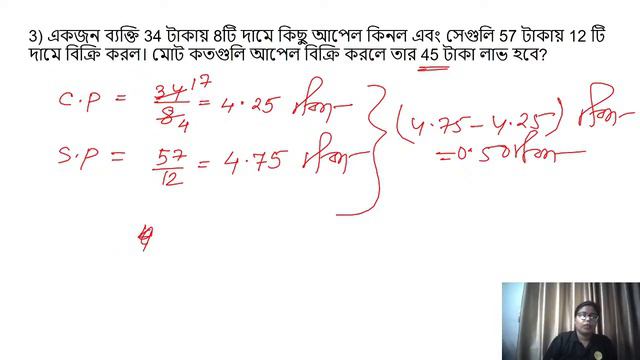 3) একজন ব্যক্তি 34 টাকায় 8টি দামে কিছু আপেল কিনল এবং সেগুলি 57 টাকায় 12 টি
দামে বিক্রি করল। মোট কতগুলি আপেল বিক্রি করলে তার 45 টাকা লাভ হবে?
C.P = 34 17 / 8 4 = 4.25 টাকা
S.P = 57 / 12 = 4.75 টাকা
(4.75 - 4.25) টাকা
= 0.50 টাকা